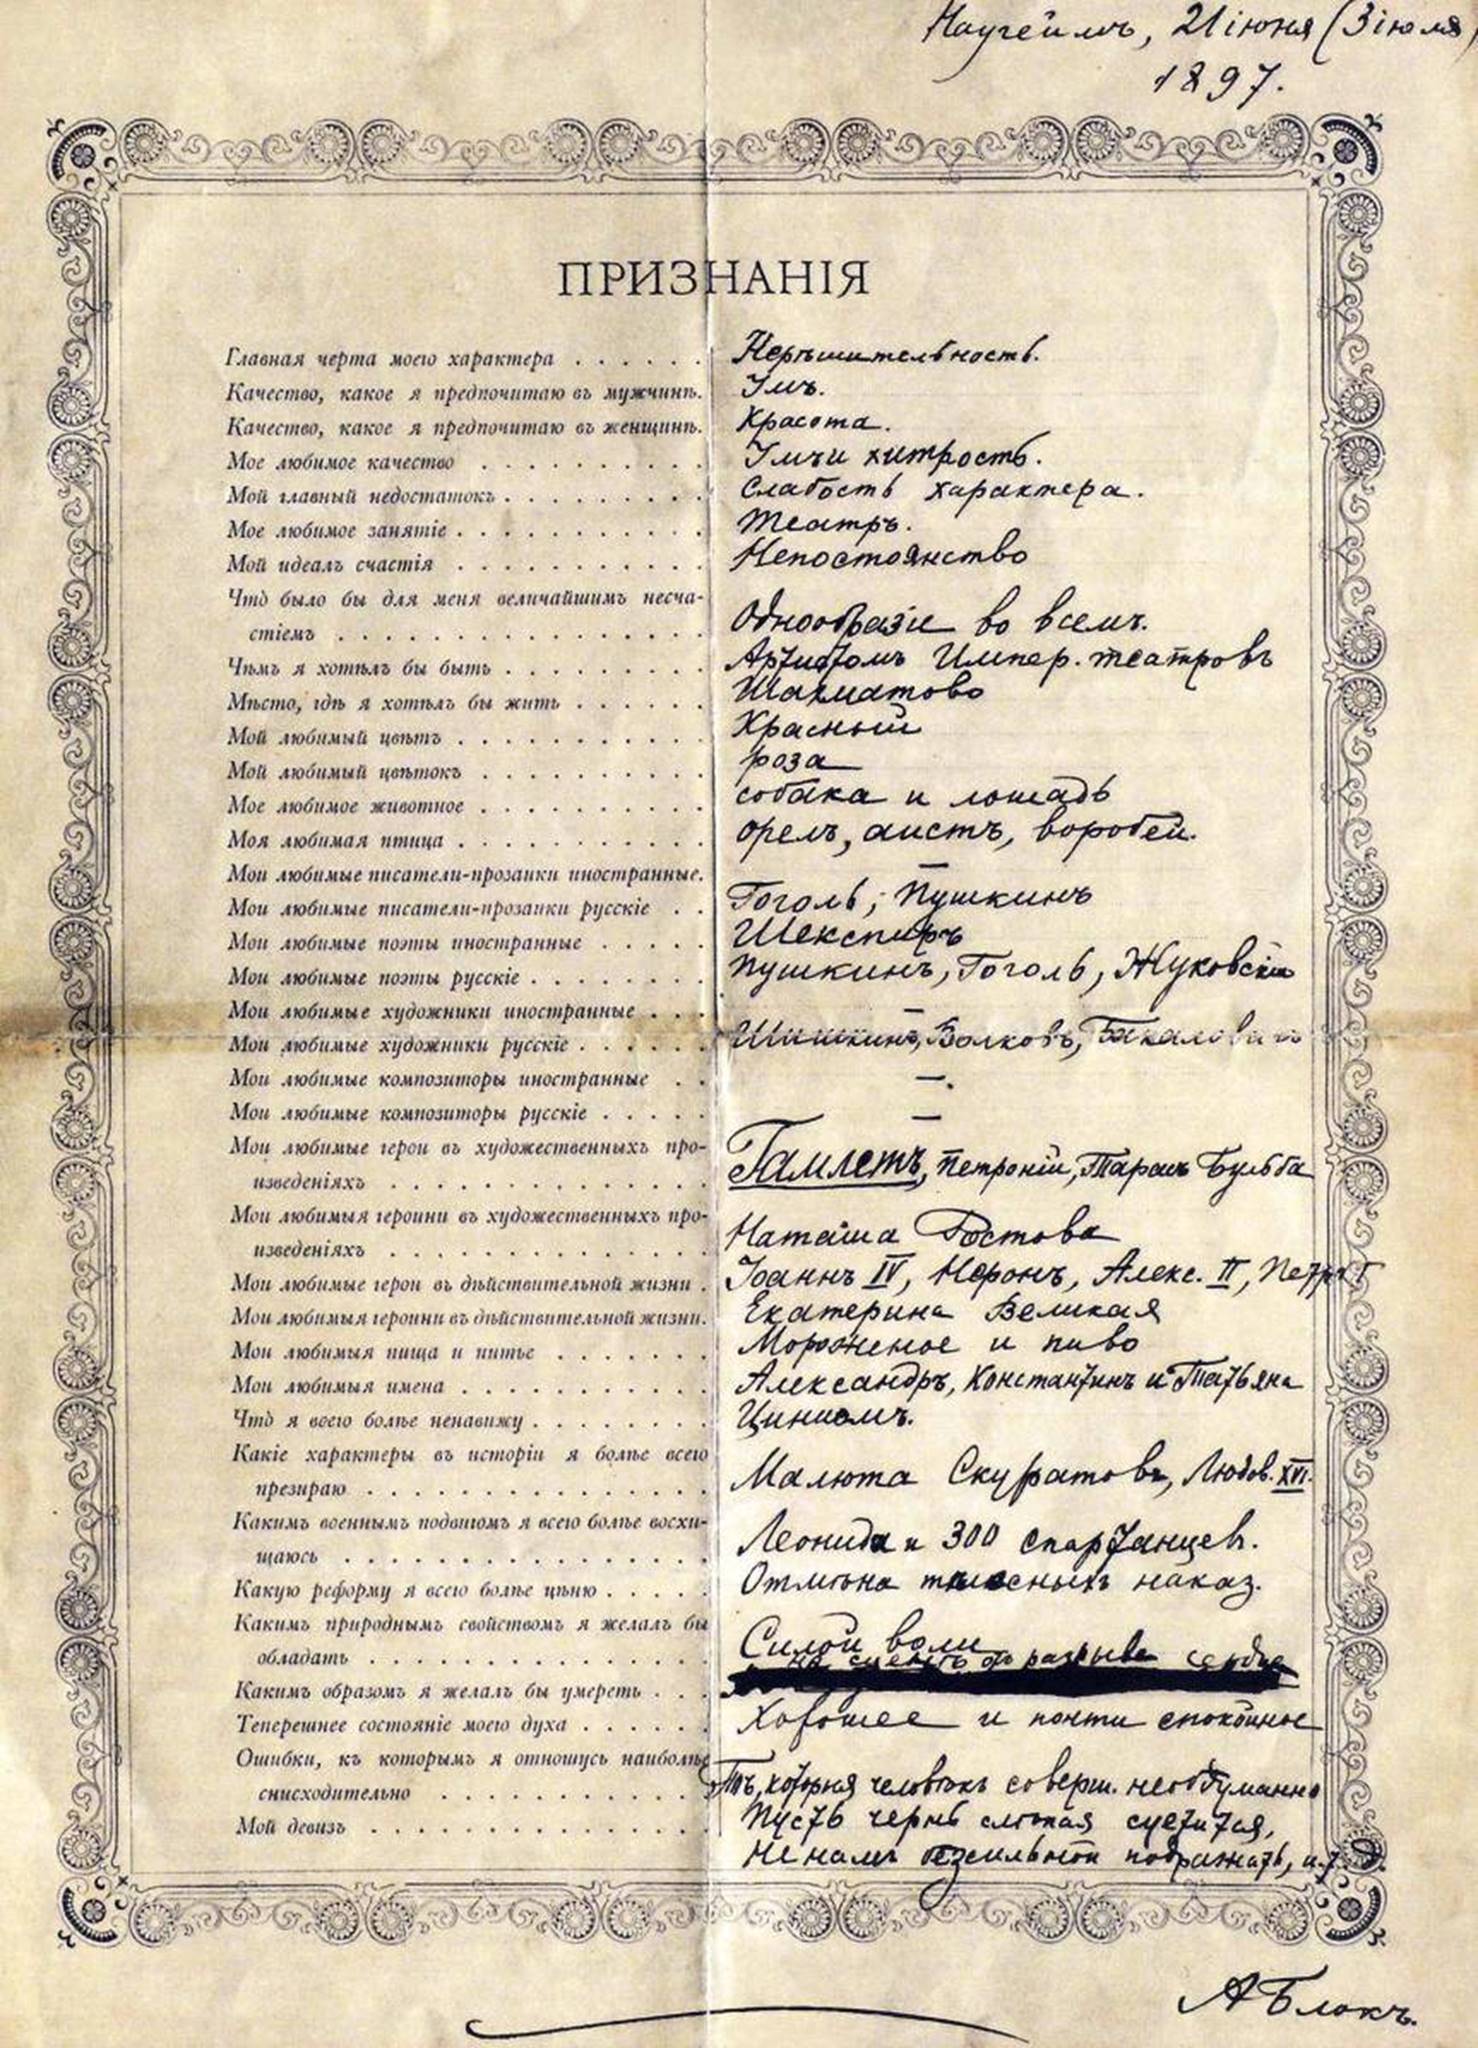 Наугеймъ, 21 іюня (3 іюля)
1897.
ПРИЗНАНІЯ
Главная черта моего характера . . . . . . Нерѣшительность.
Качество, какое я предпочитаю въ мужчинѣ. Умъ.
Качество, какое я предпочитаю въ женщинѣ. Красота.
Мое любимое качество . . . . . . . . . . Умъ и хитрость.
Мой главный недостатокъ . . . . . . . . . Слабость характера.
Мое любимое занятіе . . . . . . . . . . . Театръ.
Мой идеалъ счастія . . . . . . . . . . . Непостоянство
Что́ было бы для меня величайшимъ несча-
стіемъ . . . . . . . . . . . . . . . . Однообразіе во всемъ.
Чѣмъ я хотѣлъ бы быть . . . . . . . . . Артистомъ Импер. театровъ
Мѣсто, гдѣ я хотѣлъ бы жить . . . . . . Шахматово
Мой любимый цвѣтъ . . . . . . . . . . . Красный
Мой любимый цвѣтокъ . . . . . . . . . . роза
Мое любимое животное . . . . . . . . . . собака и лошадь
Моя любимая птица . . . . . . . . . . . орелъ, аистъ, воробей.
Мои любимые писатели-прозаики иностранные. —
Мои любимые писатели-прозаики русскіе . . Гоголь, Пушкинъ
Мои любимые поэты иностранные . . . . . Шекспиръ
Мои любимые поэты русскіе . . . . . . . . Пушкинъ, Гоголь, Жуковскій
Мои любимые художники иностранные . . . —
Мои любимые художники русскіе . . . . . . Шишкинъ, Волковъ, Бакаловичъ
Мои любимые композиторы иностранные . . —.
Мои любимые композиторы русскіе . . . . . —
Мои любимые герои въ художественныхъ про-
изведеніяхъ . . . . . . . . . . . . . . Гамлетъ, Петроній, Тарасъ Бульба
Мои любимыя героини въ художественныхъ про-
изведеніяхъ . . . . . . . . . . . . . . Наташа Ростова
Мои любимые герои въ дѣйствительной жизни . Іоаннъ IV, Неронъ, Алекс. II, Петръ I
Мои любимыя героини въ дѣйствительной жизни. Екатерина Великая
Мои любимыя пища и питье . . . . . . . Мороженое и пиво
Мои любимыя имена . . . . . . . . . . . Александръ, Константинъ и Татьяна
Что́ я всего болѣе ненавижу . . . . . . . . Цинизмъ.
Какіе характеры въ исторіи я болѣе всего
презираю . . . . . . . . . . . . . . . Малюта Скуратовъ, Людов. XVI.
Какимъ военнымъ подвигомъ я всего болѣе восхи-
щаюсь . . . . . . . . . . . . . . . . Леонида и 300 спартанцевъ.
Какую реформу я всего болѣе цѣню . . . . . Отмѣна тѣлесныхъ наказ.
Какимъ природнымъ свойствомъ я желалъ бы
обладать . . . . . . . . . . . . . . . Силой воли
Какимъ образомъ я желалъ бы умереть . . . на сценѣ отъ разрыва сердца
Теперешнее состояніе моего духа . . . . . . Хорошее и почти спокойное
Ошибки, къ которымъ я отношусь наиболѣе
снисходительно . . . . . . . . . . . . Тѣ, которыя человѣкъ соверш. необдуманно
Мой девизъ . . . . . . . . . . . . . . . Пусть чернь слѣпая суетится,
Не намъ безсильной подражать, и т. д.
А Блокъ.